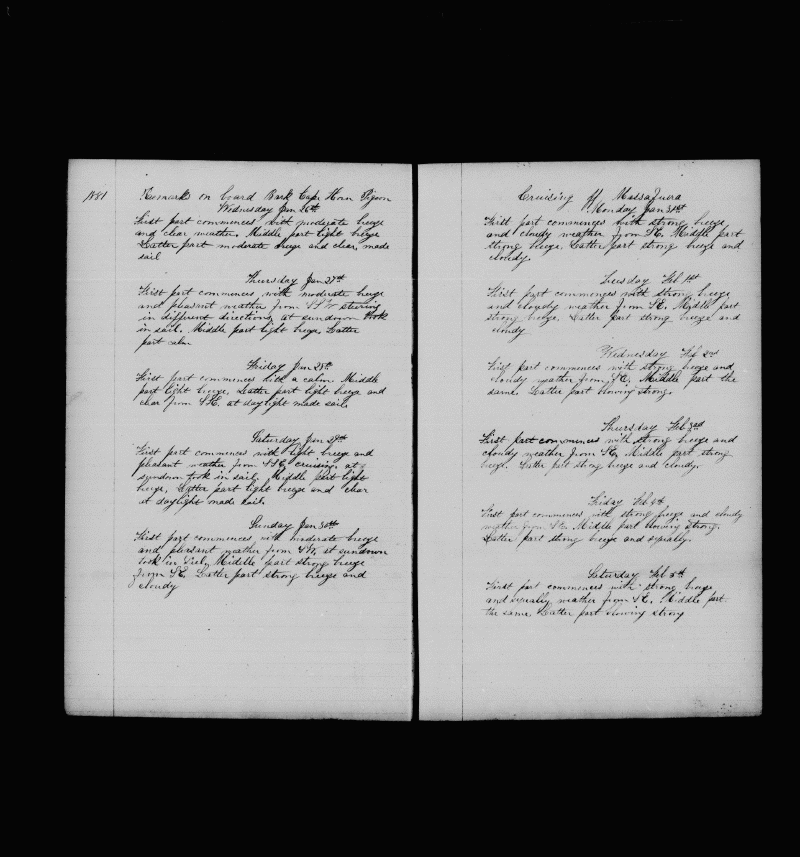 1881
Remarks on board Bark Cape Horn Pigeon
Wednesday Jan 26th
First part commences with moderate breeze
and clear weather. Middle part light breeze
Latter part moderate breeze and clear, made
sail
Thursday Jan 27th
First part commences with moderate breeze
and pleasant weather from SSW steering
in different directions at sundown took
in sail. Middle part light breeze, Latter
part calm
Friday Jan 28th
First part commences with a calm. Middle
part light breeze, Latter part light breeze and
clear from SSE. at daylight made sail.
Saturday Jan 29th
First part commences with light breeze and
pleasant weather from SSE, cruising, at
sundown took in sail. Middle part light
breeze, Latter part light breeze and clear
at daylight made sail.
Sunday Jan 30th
First part commences, with moderate breeze
and pleasant weather from SW, at sundown
took in sail, Middle part strong breeze
from SE. Latter part strong breeze and
cloudy
Cruising off Massafuera
Monday Jan 31st
First part commences with strong breeze
and cloudy weather from SE. Middle part
strong breeze, Latter part strong breeze and
cloudy.
Tuesday Feb 1st
First part commences with strong breeze
and cloudy weather from SE. Middle part
strong breeze, Latter part strong breeze and
cloudy
Wednesday Feb 2nd
First part commences with strong breeze and
cloudy weather from SE, Middle part the
same. Latter part blowing strong.
Thursday Feb 3rd
First part commences with strong breeze and
cloudy weather from SE, Middle part strong
breeze. Latter part strong breeze and cloudy.
Friday Feb 4th
First part commences, with strong breeze and cloudy
weather from SE. Middle part blowing strong.
Latter part strong breeze and squally.
Saturday Feb 5th
First part commences with strong breeze
and squally weather from SE. Middle part
the same, Latter part blowing strong